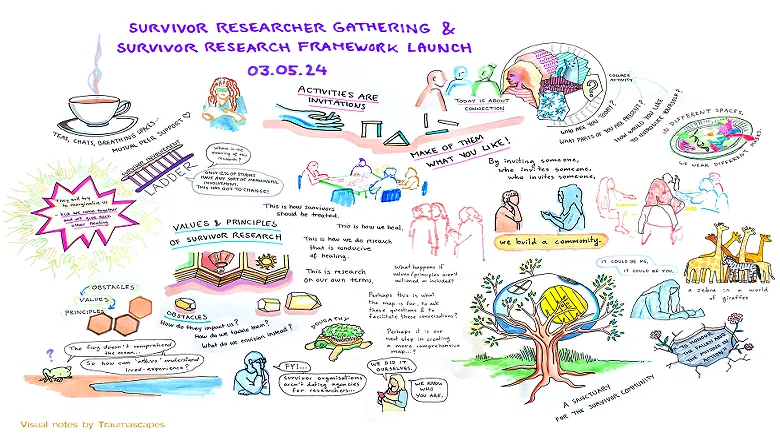 SURVIVOR RESEARCHER GATHERING &
SURVIVOR RESEARCH FRAMEWORK LAUNCH
03.05.24
TEAS, CHATS, BREATHING SPACES...
MUTUAL PEER SUPPORT
ACTIVITIES ARE
INVITATIONS
MAKE OF THEM
WHAT YOU LIKE!
TODAY IS ABOUT
CONNECTION
COLLAGE
ACTIVITY
WHO ARE YOU TODAY?
WHAT PARTS OF YOU ARE PRESENT?
HOW WOULD YOU LIKE
TO INTRODUCE YOURSELF?
IN DIFFERENT SPACES,
WE WEAR DIFFERENT MASKS.
SURVIVOR INVOLVEMENT
LADDER
Where is the
meaning of this
research?
ONLY 12% OF STUDIES
HAVE ANY SORT OF MEANINGFUL
INVOLVEMENT.
THIS HAS GOT TO CHANGE!
They will try
to marginalise us
but we come together
and we give each
other healing
This is how survivors
should be treated.
This is how we heal.
This is how we do research
that is conducive
of healing.
This is research
on our own terms.
VALUES & PRINCIPLES
OF SURVIVOR RESEARCH
By inviting someone,
who invites someone,
who invites someone,
we build a community.
IT COULD BE ME,
IT COULD BE YOU.
a zebra in a world
of giraffes
What happens if
values/principles aren't
actioned or included?
Perhaps this is what
the map is for; to ask
these questions & to
facilitate these conversations?
Perhaps it is our
next step in creating
a more comprehensive
map...?
OBSTACLES
VALUES
PRINCIPLES
OBSTACLES
How do they impact us?
How do we tackle them?
What do we envision instead?
The frog doesn't comprehend
the ocean...
So how can "ethics" understand
lived-experience?
FYI...
survivor organisations
aren't dating agencies
for researchers...
WE DID IT
OURSELVES.
WE KNOW
WHO
YOU ARE.
A SANCTUARY
FOR THE SURVIVOR COMMUNITY
Visual notes by Traumascapes